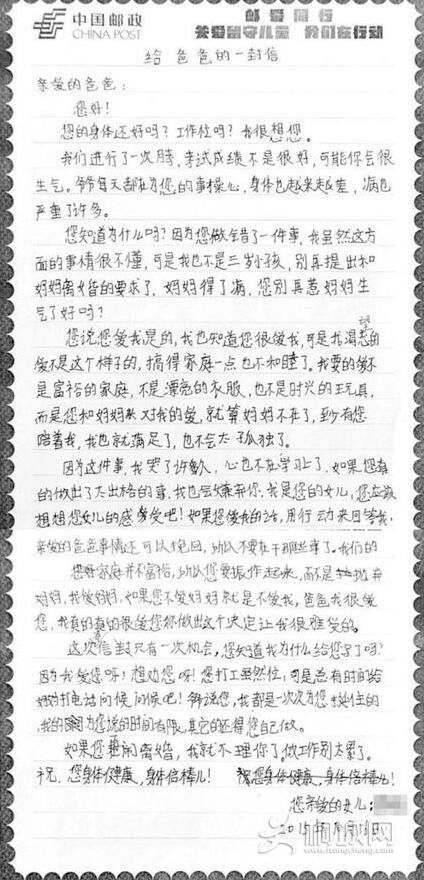 中国邮政
CHINA POST
邮爱同行
关爱留守儿童 我们在行动
给爸爸的一封信
亲爱的爸爸：
您好！
您的身体还好吗？工作忙吗？我很想您。
我们进行了一次考试，考试成绩不是很好，可能你会很
生气。爷爷每天都在为您的事操心，身体也越来越差，病也
严重了许多。
您知道为什么吗？因为您做错了一件事，我虽然这方
面的事情很不懂，可是我也不是三岁小孩，别再提出和
妈妈离婚的要求了，妈妈得了病，您别再惹妈妈生
气了好吗？
您说您爱我是的，我也知道您很爱我，可是我渴望的
爱不是这个样子的，搞得家庭一点也不和睦了。我要的爱不
是富裕的家庭，不是漂亮的衣服，也不是时兴的玩具，
而是您和妈妈对我的爱，就算妈妈不在了，至少有您
陪着我，我也就满足了，也不会太孤独了。
因为这件事，我哭了许久，心也不在学习上了，如果您真
的做出了太出格的事，我也会嫌弃你，我是您的女儿，您应该
想想您女儿的感受吧！如果您爱我的话，用行动来回答我，
亲爱的爸爸事情还可以挽回，所以不要在干那些事了。我们的
家庭并不富裕，所以您要振作起来，而不是抛弃
妈妈，我爱妈妈，如果您不爱妈妈就是不爱我，爸爸我很爱
您，我真的真的很爱您你做出这个决定让我很难受的。
这次信封只有一次机会，您知道我为什么给您写了吗？
因为我爱您呀！想劝您呀！您打工虽然忙，可是总有时间给
妈妈打电话问候问候吧！爷说您，我都是一次次为您
我的为您说的时间有限，其它的还得您自己做。
如果您要闹离婚，我就不理你了。做工作别太累了。
祝您身体健康，身体倍棒儿！ 祝您身体健康，身体倍棒儿！
您亲爱的女儿：
2015年
红网
www.hongcheng.com